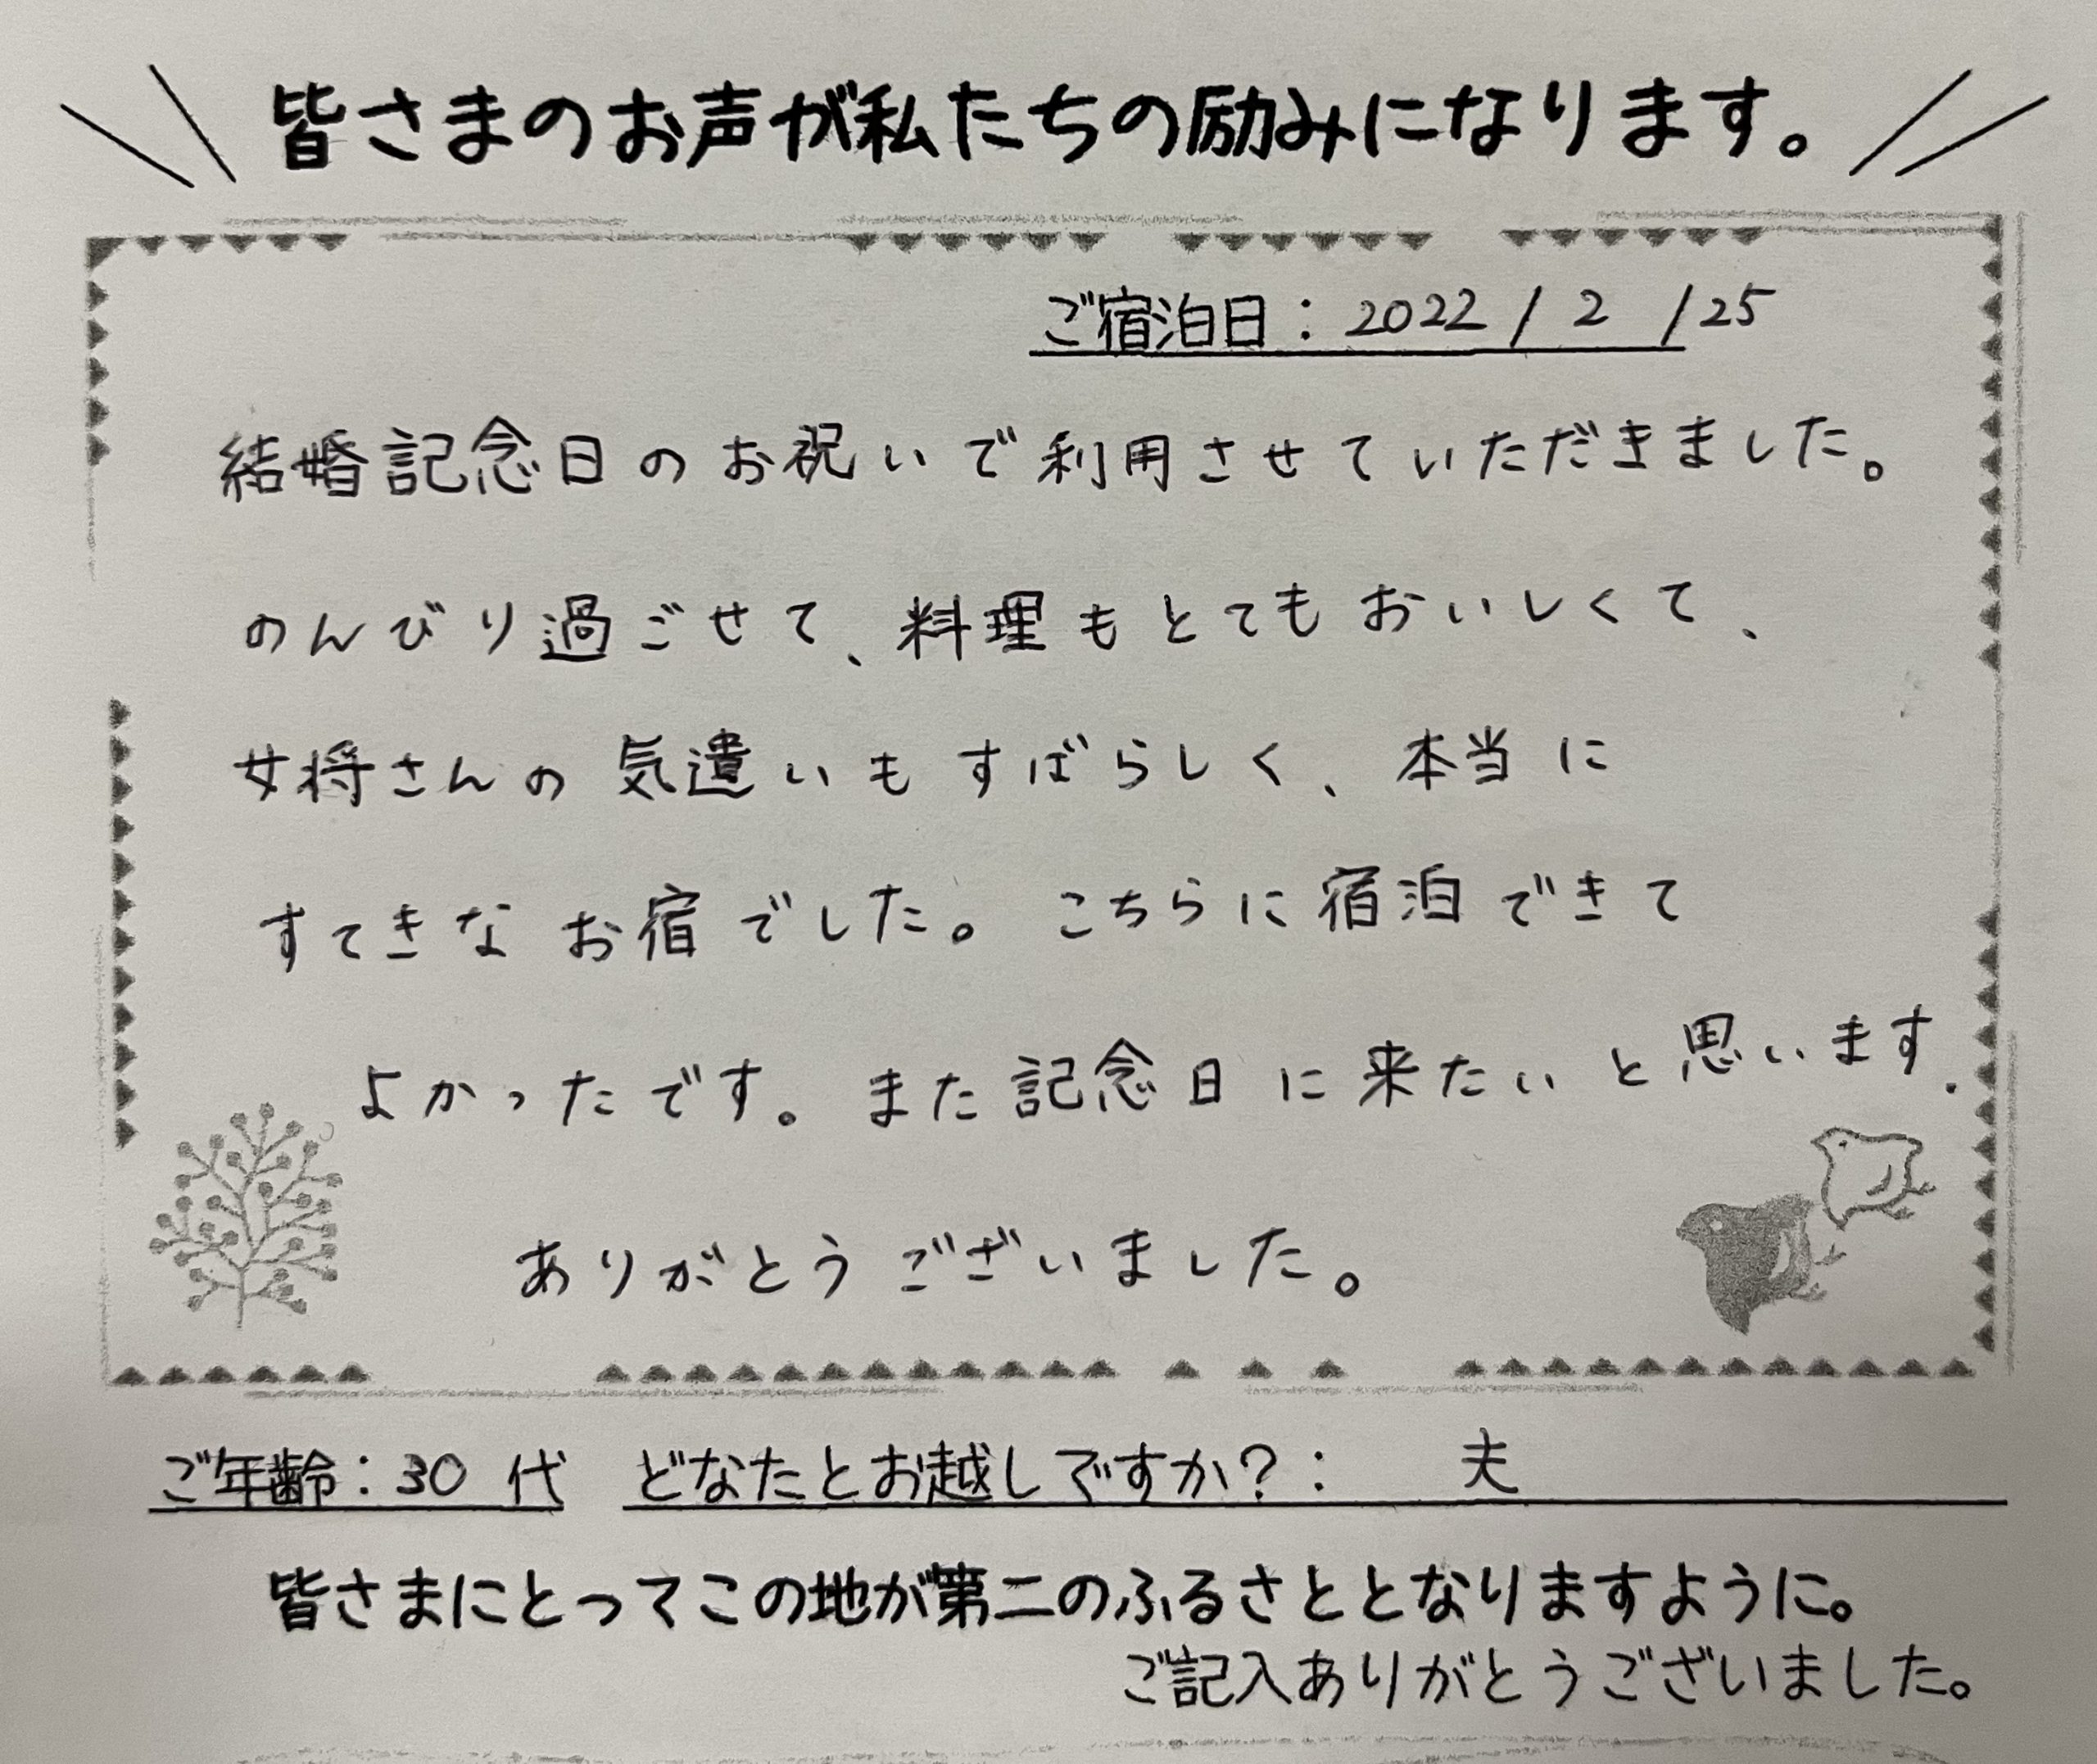 皆さまのお声が私たちの励みになります。
ご宿泊日：2022 / 2 / 25
結婚記念日のお祝いで利用させていただきました。
のんびり過ごせて、料理もとてもおいしくて、
女将さんの気遣いもすばらしく、本当に
すてきなお宿でした。こちらに宿泊できて
よかったです。また記念日に来たいと思います.
ありがとうございました。
ご年齢：30代 どなたとお越しですか？： 夫
皆さまにとってこの地が第二のふるさととなりますように。
ご記入ありがとうございました。